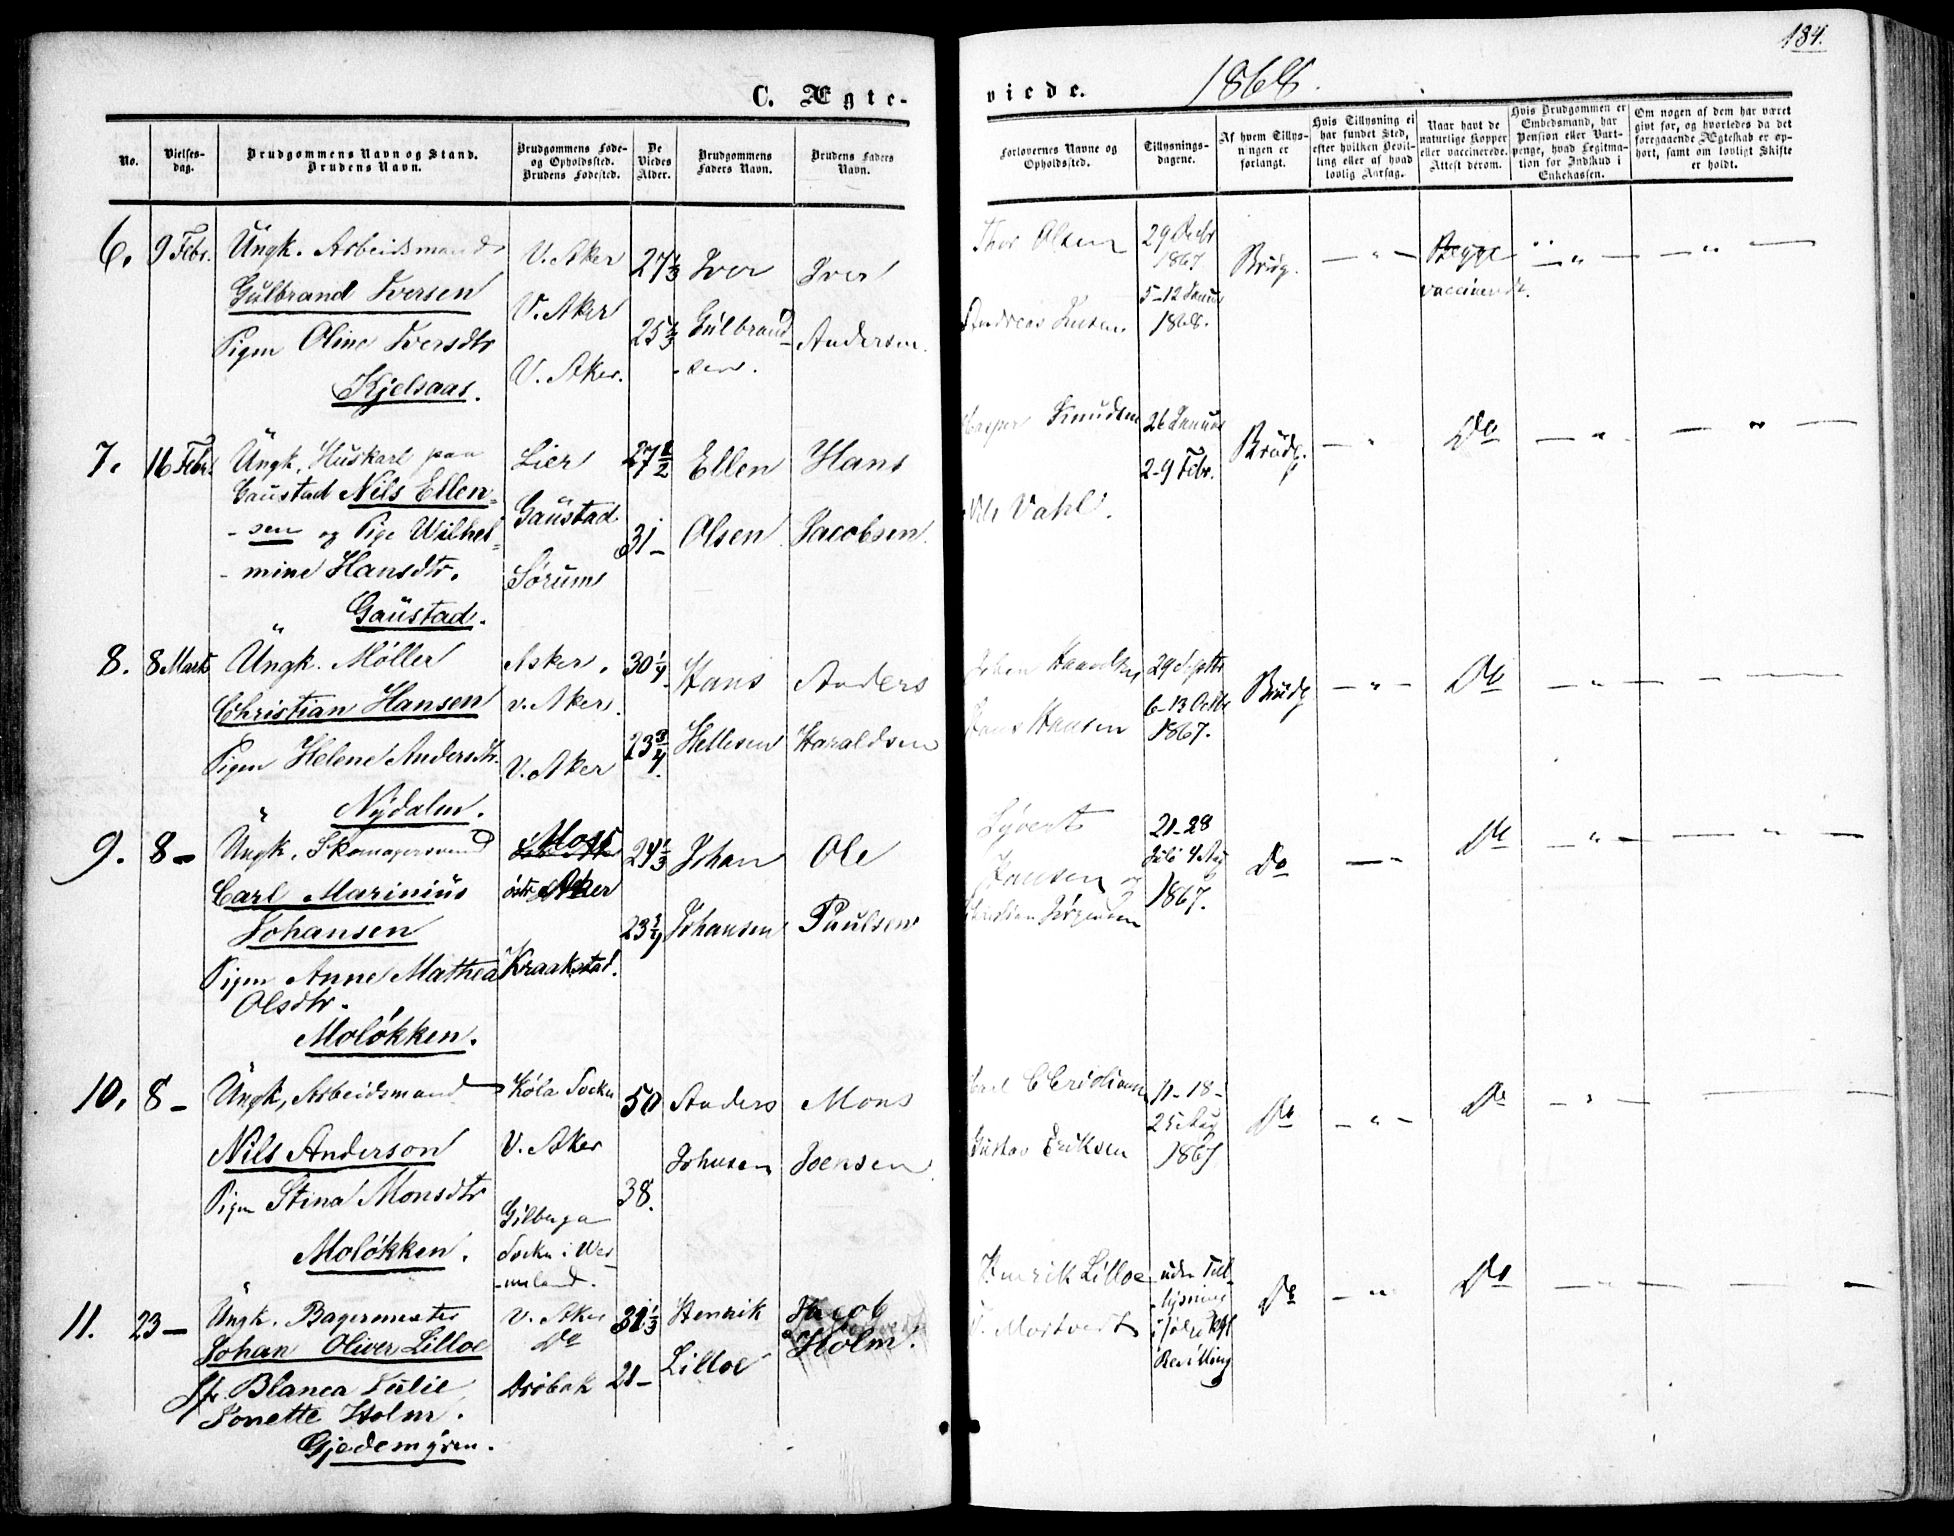 184.
C. Ægte-
viede.
1868.
No.
Vielses-
dag.
Brudgommens Navn og Stand.
Brudens Navn.
Brudgommens Føde-
og Opholdssted.
Brudens Fødested.
De
Viedes
Alder.
Brudgommens
Faders Navn.
Brudens Faders
Navn.
Forlovernes Navne og
Opholdssted.
Tillysnings-
dagene.
Af hvem Tillys-
ningen er
forlangt.
Hvis Tillysning ei
har fundet Sted,
efter hvilken Bevil-
ling eller af hvad
lovlig Aarsag.
Naar havt de
naturlige Kopper
eller vaccinerede.
Attest derom.
Hvis Brudgommen er
Embedsmand, har
Pension eller Vart-
penge, hvad Legitima-
tion for Indskud i
Enkekassen.
Om nogen af dem har været
givt før, og hvorledes da det
foregaaende Ægteskab er op-
hørt, samt om lovligt Skifte
er holdt.
6.
9 Febr.
Ungk. Arbeidsmand
Gulbrand Iversen
Pigen Oline Iversdtr
Kjelsaas.
V. Aker
V. Aker
V. Aker.
27 1/3
Iver
Gulbrand-
-sen.
Iver
Andersen.
Thor Olsen
Andreas
29 Decbr
1867
5-12 Januar
1868.
Brudg.
— " —
Begge
vaccinerede.
— " —
— " —
7.
16 Febr.
Ungk. Huskarl paa
Gaustad Nils Ellen-
-sen og Pige Wilhel-
-mine Hansdtr.
Gaustad.
Lier
Gaustad
Sørum
27 1/2
31 -
Ellen
Olsen
Hans
Jacobsen.
Knudsen
Vahl.
26 Januar
2-9 Febr.
Brudg.
— " —
Do
— " —
— " —
8.
8 Marts
Ungk. Møller
Christian Hansen
Pigen Helene Andersdtr.
Nydalen.
Asker.
v. Aker.
V. Aker
30 1/4
23 3/4
Hans
Hellesen
Anders
Haraldsen
Johan
Hans Hansen
29 Septbr
6-13 Octbr
1867.
Brudg
— " —
Do
— " —
— " —
9.
8 -
Ungk. Skomagersvend
Carl Marinius
Johansen
Pigen Anne Mathea
Olsdtr.
Moløkken.
Moss
Aker
Kraakstad.
24 1/3
23 3/4
Johan
Johansen
Ole
Paulsen
Syvert
Hansen og
Christian Jørgensen
21-28
Juli 4 Aug
1867.
Do
— " —
Do
— " —
— " —
10.
8 -
Ungk. Arbeidsmand
Nils Anderson
Pigen Stina Monsdtr
Moløkken.
Köla Socken
V. Aker
Gilberga
Socken i Wer-
-meland.
50
38.
Anders
Johnsen
Mons
Joensen
Carl Christiansen
Gustav Eriksen
11-18-
25 Aug
1867
Do
— " —
Do
— " —
11.
23 -
Ungk. Bagermester
Johan Oliver Lilloe
Jfr. Blanca Julie
Jonette Holm.
Gjedemyren.
V. Aker
Do
Drøbak
31 1/3
21 -
Henrik
Lilloe
Jacob
Holm.
Henrik Lilloe
Mostvedt
uden Til-
lysning
ifølge Kgl
Bevilling
Do
— " —
Do